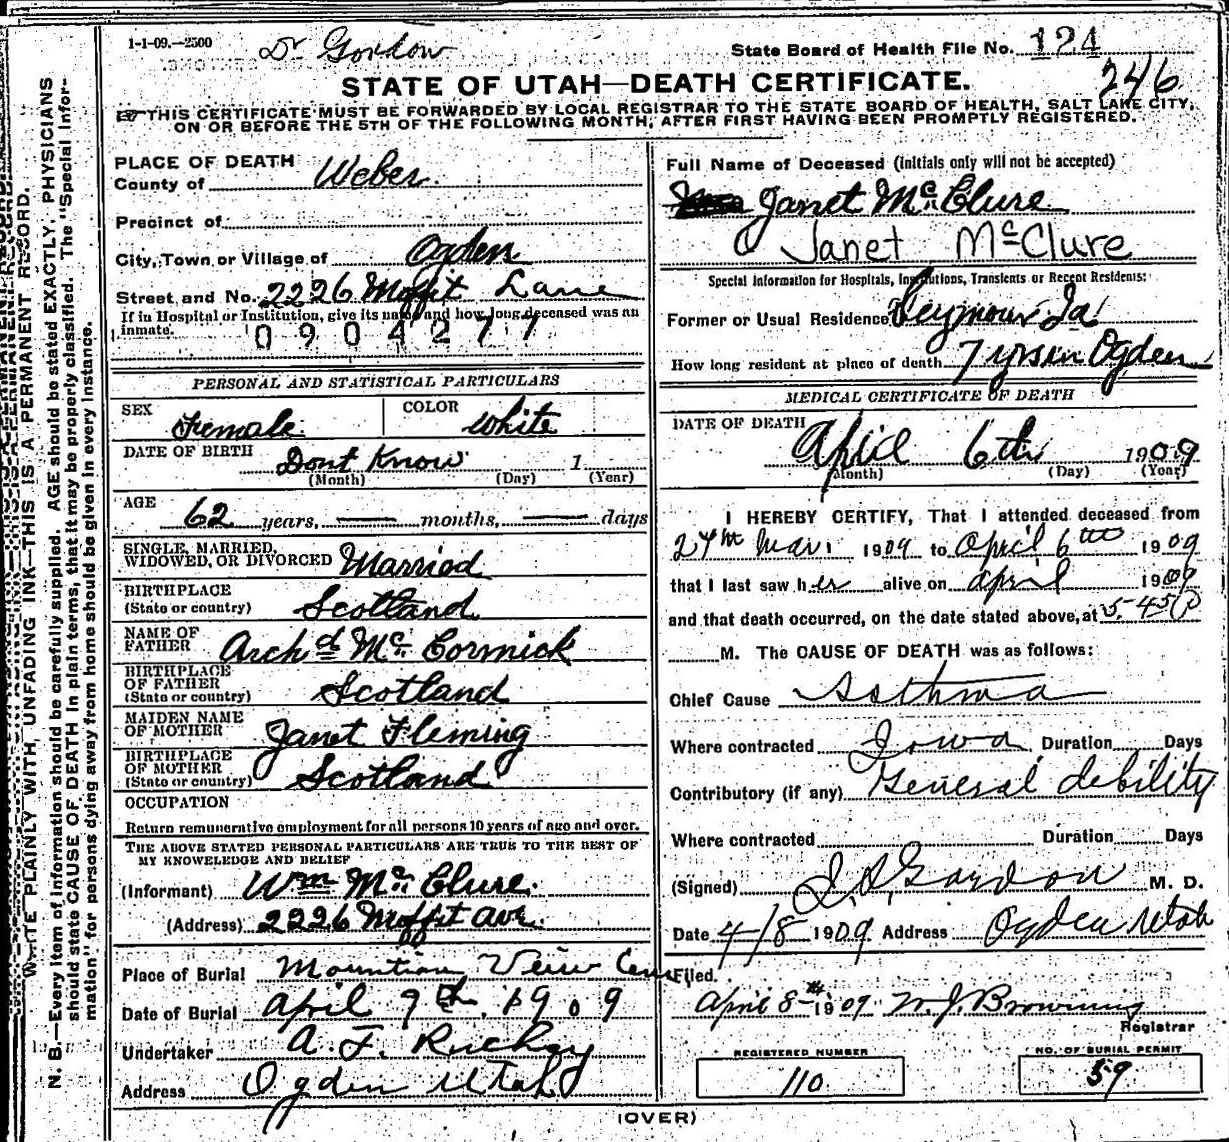 1-1-09.—2500
Dr Gordon
State Board of Health File No. 124
246
STATE OF UTAH—DEATH CERTIFICATE.
THIS CERTIFICATE MUST BE FORWARDED BY LOCAL REGISTRAR TO THE STATE BOARD OF HEALTH, SALT LAKE CITY,
ON OR BEFORE THE 5TH OF THE FOLLOWING MONTH, AFTER FIRST HAVING BEEN PROMPTLY REGISTERED.
N. B.—Every item of information should be carefully supplied. AGE should be stated EXACTLY. PHYSICIANS
should state CAUSE OF DEATH in plain terms, that it may be properly classified. The "Special Infor-
mation" for persons dying away from home should be given in every instance.
WRITE PLAINLY WITH UNFADING INK—THIS IS A PERMANENT RECORD.
PLACE OF DEATH
County of Weber
Precinct of
City, Town or Village of Ogden
Street and No. 2226 Moffit Lane
If in Hospital or Institution, give its name and how long deceased was an
inmate.
0904277
PERSONAL AND STATISTICAL PARTICULARS
SEX Female
COLOR White
DATE OF BIRTH Dont Know 1
(Month) (Day) (Year)
AGE 62 years, — months, — days
SINGLE, MARRIED,
WIDOWED, OR DIVORCED Married
BIRTHPLACE
(State or country) Scotland
NAME OF
FATHER Archd McCormick
BIRTHPLACE
OF FATHER
(State or country) Scotland
MAIDEN NAME
OF MOTHER Janet Fleming
BIRTHPLACE
OF MOTHER
(State or country) Scotland
OCCUPATION
Return remunerative employment for all persons 10 years of age and over.
THE ABOVE STATED PERSONAL PARTICULARS ARE TRUE TO THE BEST OF
MY KNOWLEDGE AND BELIEF
(Informant) Wm McClure.
(Address) 2226 Moffit Ave.
Place of Burial Mountian Veiw Cem
Date of Burial April 9th. 1909
Undertaker A. F.
Address Ogden Utah
Full Name of Deceased (initials only will not be accepted)
Janet McClure
Janet McClure
Special Information for Hospitals, Institutions, Transients or Recent Residents:
Former or Usual Residence Seymour Ia
How long resident at place of death 7 yrs in Ogden
MEDICAL CERTIFICATE OF DEATH
DATE OF DEATH
April 6th 1909
(Month) (Day) (Year)
I HEREBY CERTIFY, That I attended deceased from
27th Mar. 1909 to April 6th 1909
that I last saw her alive on April 1909
and that death occurred, on the date stated above, at 5-45 P
M. The CAUSE OF DEATH was as follows:
Chief Cause Asthma
Where contracted Iowa Duration Days
Contributory (if any) General debility
Where contracted Duration Days
(Signed) Gordon M. D.
Date 4/8 1909 Address Ogden Utah
Filed
April 8th 1909 W. J. Browning
Registrar
REGISTERED NUMBER
110
NO. OF BURIAL PERMIT
59
(OVER)